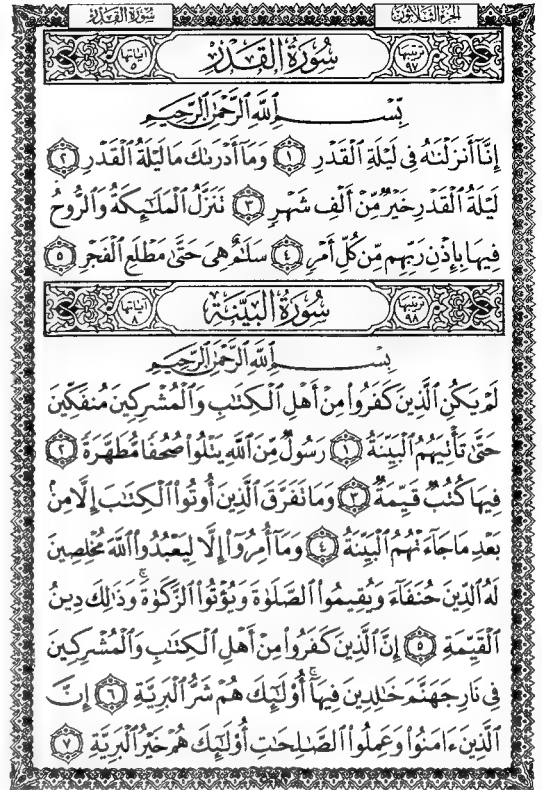 الجزء الثلاثون
سُورَةُ القَدْرِ
ترتيبها ٩٧
سُورَةُ القَدْرِ
آياتها ٥
بِسْمِ ٱللَّهِ ٱلرَّحْمَٰنِ ٱلرَّحِيمِ
إِنَّآ أَنزَلْنَٰهُ فِى لَيْلَةِ ٱلْقَدْرِ ١ وَمَآ أَدْرَىٰكَ مَا لَيْلَةُ ٱلْقَدْرِ ٢
لَيْلَةُ ٱلْقَدْرِ خَيْرٌ مِّنْ أَلْفِ شَهْرٍ ٣ تَنَزَّلُ ٱلْمَلَٰٓئِكَةُ وَٱلرُّوحُ
فِيهَا بِإِذْنِ رَبِّهِم مِّن كُلِّ أَمْرٍ ٤ سَلَٰمٌ هِىَ حَتَّىٰ مَطْلَعِ ٱلْفَجْرِ ٥
ترتيبها ٩٨
سُورَةُ البَيِّنَةِ
آياتها ٨
بِسْمِ ٱللَّهِ ٱلرَّحْمَٰنِ ٱلرَّحِيمِ
لَمْ يَكُنِ ٱلَّذِينَ كَفَرُوا۟ مِنْ أَهْلِ ٱلْكِتَٰبِ وَٱلْمُشْرِكِينَ مُنفَكِّينَ
حَتَّىٰ تَأْتِيَهُمُ ٱلْبَيِّنَةُ ١ رَسُولٌ مِّنَ ٱللَّهِ يَتْلُوا۟ صُحُفًا مُّطَهَّرَةً ٢
فِيهَا كُتُبٌ قَيِّمَةٌ ٣ وَمَا تَفَرَّقَ ٱلَّذِينَ أُوتُوا۟ ٱلْكِتَٰبَ إِلَّا مِنۢ
بَعْدِ مَا جَآءَتْهُمُ ٱلْبَيِّنَةُ ٤ وَمَآ أُمِرُوٓا۟ إِلَّا لِيَعْبُدُوا۟ ٱللَّهَ مُخْلِصِينَ
لَهُ ٱلدِّينَ حُنَفَآءَ وَيُقِيمُوا۟ ٱلصَّلَوٰةَ وَيُؤْتُوا۟ ٱلزَّكَوٰةَ ۚ وَذَٰلِكَ دِينُ
ٱلْقَيِّمَةِ ٥ إِنَّ ٱلَّذِينَ كَفَرُوا۟ مِنْ أَهْلِ ٱلْكِتَٰبِ وَٱلْمُشْرِكِينَ
فِى نَارِ جَهَنَّمَ خَٰلِدِينَ فِيهَآ ۚ أُو۟لَٰٓئِكَ هُمْ شَرُّ ٱلْبَرِيَّةِ ٦ إِنَّ
ٱلَّذِينَ ءَامَنُوا۟ وَعَمِلُوا۟ ٱلصَّٰلِحَٰتِ أُو۟لَٰٓئِكَ هُمْ خَيْرُ ٱلْبَرِيَّةِ ٧